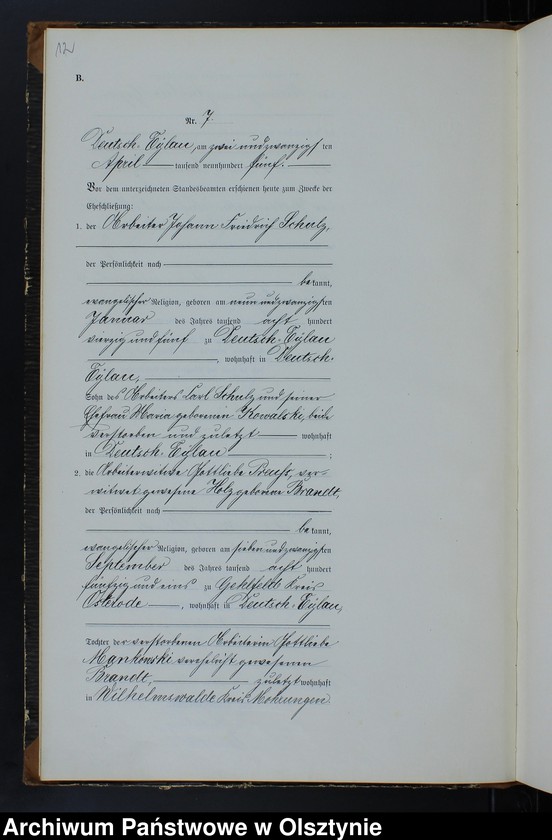 12
B.
Nr. 7.
Deutsch-Eylau, am zwei und zwanzigsten
April tausend neunhundert fünf.
Vor dem unterzeichneten Standesbeamten erschienen heute zum Zwecke der
Eheschließung:
1. der Arbeiter Johann Friedrich Schulz,
der Persönlichkeit nach
bekannt,
evangelischer Religion, geboren am neun und zwanzigsten
Januar des Jahres tausend acht hundert
vierzig und fünf zu Deutsch-Eylau
, wohnhaft in Deutsch-
Eylau,
Sohn des Arbeiters Carl Schulz und seiner
Ehefrau Maria geborenen Kowalski, beide
verstorben und zuletzt wohnhaft
in Deutsch-Eylau ;
2. die Arbeiterwitwe Gottliebe Preuß, ver-
witwet gewesene Holz geborene Brandt,
der Persönlichkeit nach
bekannt,
evangelischer Religion, geboren am sieben und zwanzigsten
September des Jahres tausend acht hundert
fünfzig und eins zu Gehlfelde Kreis
Osterode , wohnhaft in Deutsch-Eylau,
Tochter der verstorbenen Arbeiterin Gottliebe
Mankowski verehelicht gewesenen
Brandt, zuletzt wohnhaft
in Wilhelmswalde Kreis Mohrungen.
Archiwum Państwowe w Olsztynie